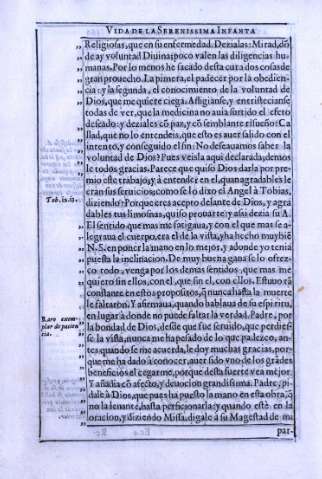 VIDA DE LA SERENISSIMA INFANTA
Religiosas, que en su enfermedad. Deziales: Mirad, dõ
de ay voluntad Diuina, poco valen las diligencias hu
manas. Por lo menos he sacado desta cura dos cosas de
gran prouecho. La primera, el padecer por la obedien-
cia: y la segunda, el conocimiento de la voluntad de
Dios, que me quiere ciega. Afligianse, y entristecianse
todas de ver, que la medicina no auia surtido el efeto
deseado: y dezials cõ paz, y cõ semblante risueño: Ca
llad, que no lo entendeis, que esto es auer salido con el
intento, y conseguido el fin: No deseauamos saber la
voluntad de Dios? Pues veisla aqui declarada, demos
le todos gracias. Parece que quiso Dios darla por pre-
mio este trabajo, y à entender en el, quan agradables le
eran sus seruicios, como se lo dixo el Angel à Tobias,
Tob. 12. 13.
diziendo: Porque eras acepto delante de Dios, y agra
dables tus limosnas, quiso prouarte: y assi dezia su A.
El sentido que mas me fatigaua, y con el que mas se a-
lograua el cuerpo, era el de la vista, y ha hecho muy biẽ
N. S. en poner la mano en lo mejor, y adonde yo tenia
puesta la inclinacion. De muy buena gana se lo ofrez-
co todo, venga por los demas sentidos, que mas me
quiero sin ellos, con el, que sin el, con ellos. Estuuo tã
constante en estos propositos, q̃ nunca hasta la muerte
le faltaron. Y a su
en lugar à donde no puede faltar la verdad. Padre, por
Raro exem-
plar de pacien
cia.
la bondad de Dios, desde que fue seruido, que perdiesse
se la vista, nunca me ha pesado de lo que padezco, an-
tes quando se me acuerda, le doy muchas gracias, por-
que me ha dado à conocer, auer sido vno de los grãdes
beneficios el cegarme, porque desta suerte vea mejor.
Y assi cõ afecto, y deuocion grandissima. Padre, pi-
dale à Dios, que pues ha puesto la mano en esta obra, q̃
no la leuante, hasta perficionarla: y quando estè en la
oracion, y diziendo Missa, digale à su Magestad de mi
par-